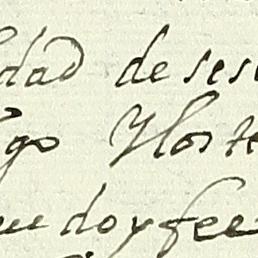 dad de ses
go Hoste
que doy fee